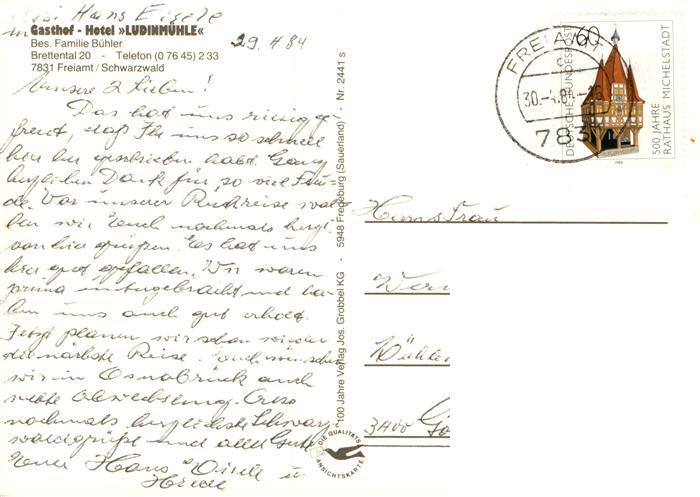 bei Hans Eigele
in Gasthof - Hotel »LUDINMÜHLE«
Bes. Familie Bühler
Brettental 20 - Telefon (0 76 45) 2 33
7831 Freiamt / Schwarzwald
29.4.84
Unsere 2 Lieben!
Das hat uns riesig ge
freut, daß Ihr uns so schnell
hier her geschrieben habt. Ganz
herzlichen Dank für so viel Freu-
de. Vor unserer Rückreise wol-
len wir Euch nochmals herzl.
von hier grüßen. Es hat uns
hier gut gefallen. Wir waren
prima untergebracht und ha-
ben uns auch gut erholt.
Jetzt planen wir schon wieder
die nächste Reise. Euch wünschen
wir in Osnabrück auch
nette Abwechslung. Also
nochmals herzlichste Schwarz-
waldgrüße und alles Gute
Eure Hans u
100 Jahre Verlag Jos. Grobbel KG - 5948 Fredeburg (Sauerland) - Nr. 2441 s
DIE QUALITÄTS
ANSICHTSKARTE
FREIAMT
30.-4.84
783
60
DEUTSCHE BUNDESPOST
500 JAHRE
RATHAUS MICHELSTADT
1984
Hans Frau
3400 Gö